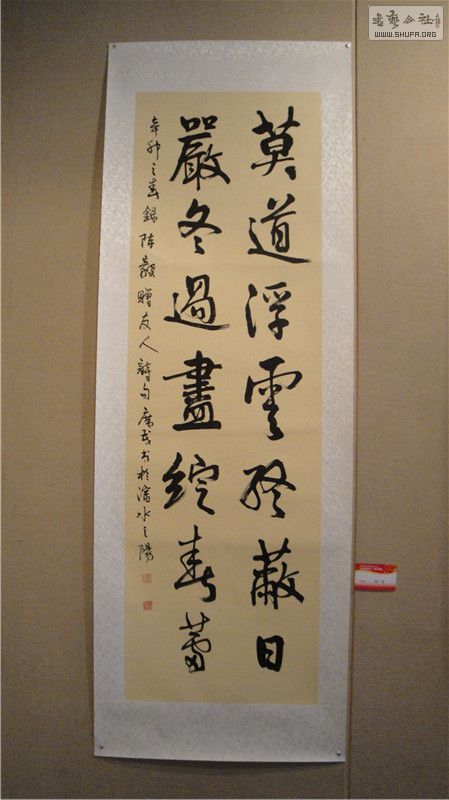 莫道浮雲終蔽日
嚴冬過盡綻春蕾
辛卯之春錄陈毅贈友人詩句席武书於深水之陽
书艺公社
WWW.SHUFA.ORG